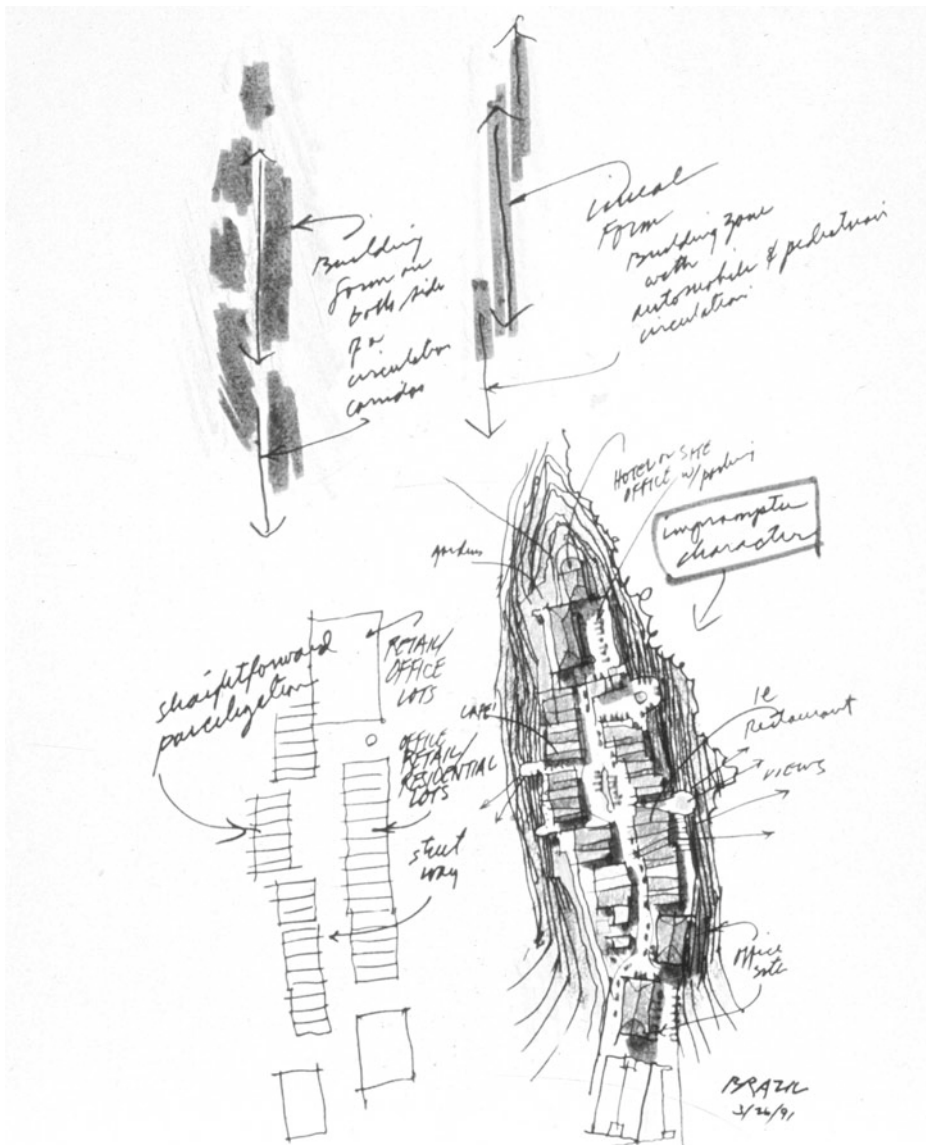 Building
form on
both side
of a
circulation
corridor
lineal
Form
Building zone
with
automobile & pedestrian
circulation
HOTEL or SITE
OFFICE w/ parking
impromptu
character
garden
straightforward
parcelization
RETAIL/
OFFICE
LOTS
CAFE!
OFFICE
RETAIL/
RESIDENTIAL
LOTS
street
way
Restaurant
VIEWS
office
site
BRAZIL
3/26/91